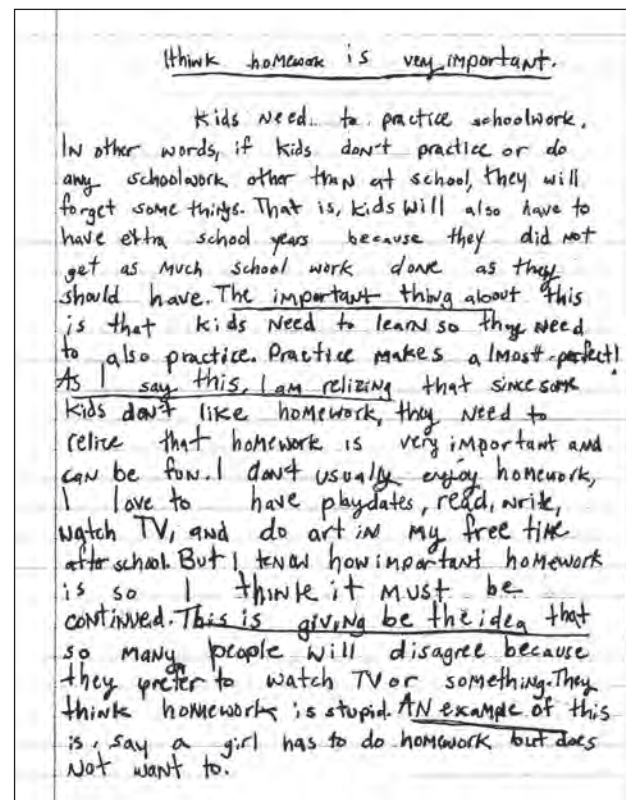 I think homework is very important.
Kids need to practice schoolwork.
In other words, if kids don't practice or do
any schoolwork other than at school, they will
forget some things. That is, kids will also have to
have extra school years because they did not
get as much school work done as they
should have. The important thing about this
is that kids need to learn so they need
to also practice. Practice makes almost-perfect!
As I say this, I am relizing that since some
kids don't like homework, they need to
relize that homework is very important and
can be fun. I don't usually enjoy homework,
I love to have playdates, read, write,
watch TV, and do art in my free time
after school. But I know how important homework
is so I think it must be
continued. This is giving be the idea that
so many people will disagree because
they prefer to watch TV or something. They
think homework is stupid. An example of this
is, say a girl has to do homework but does
not want to.